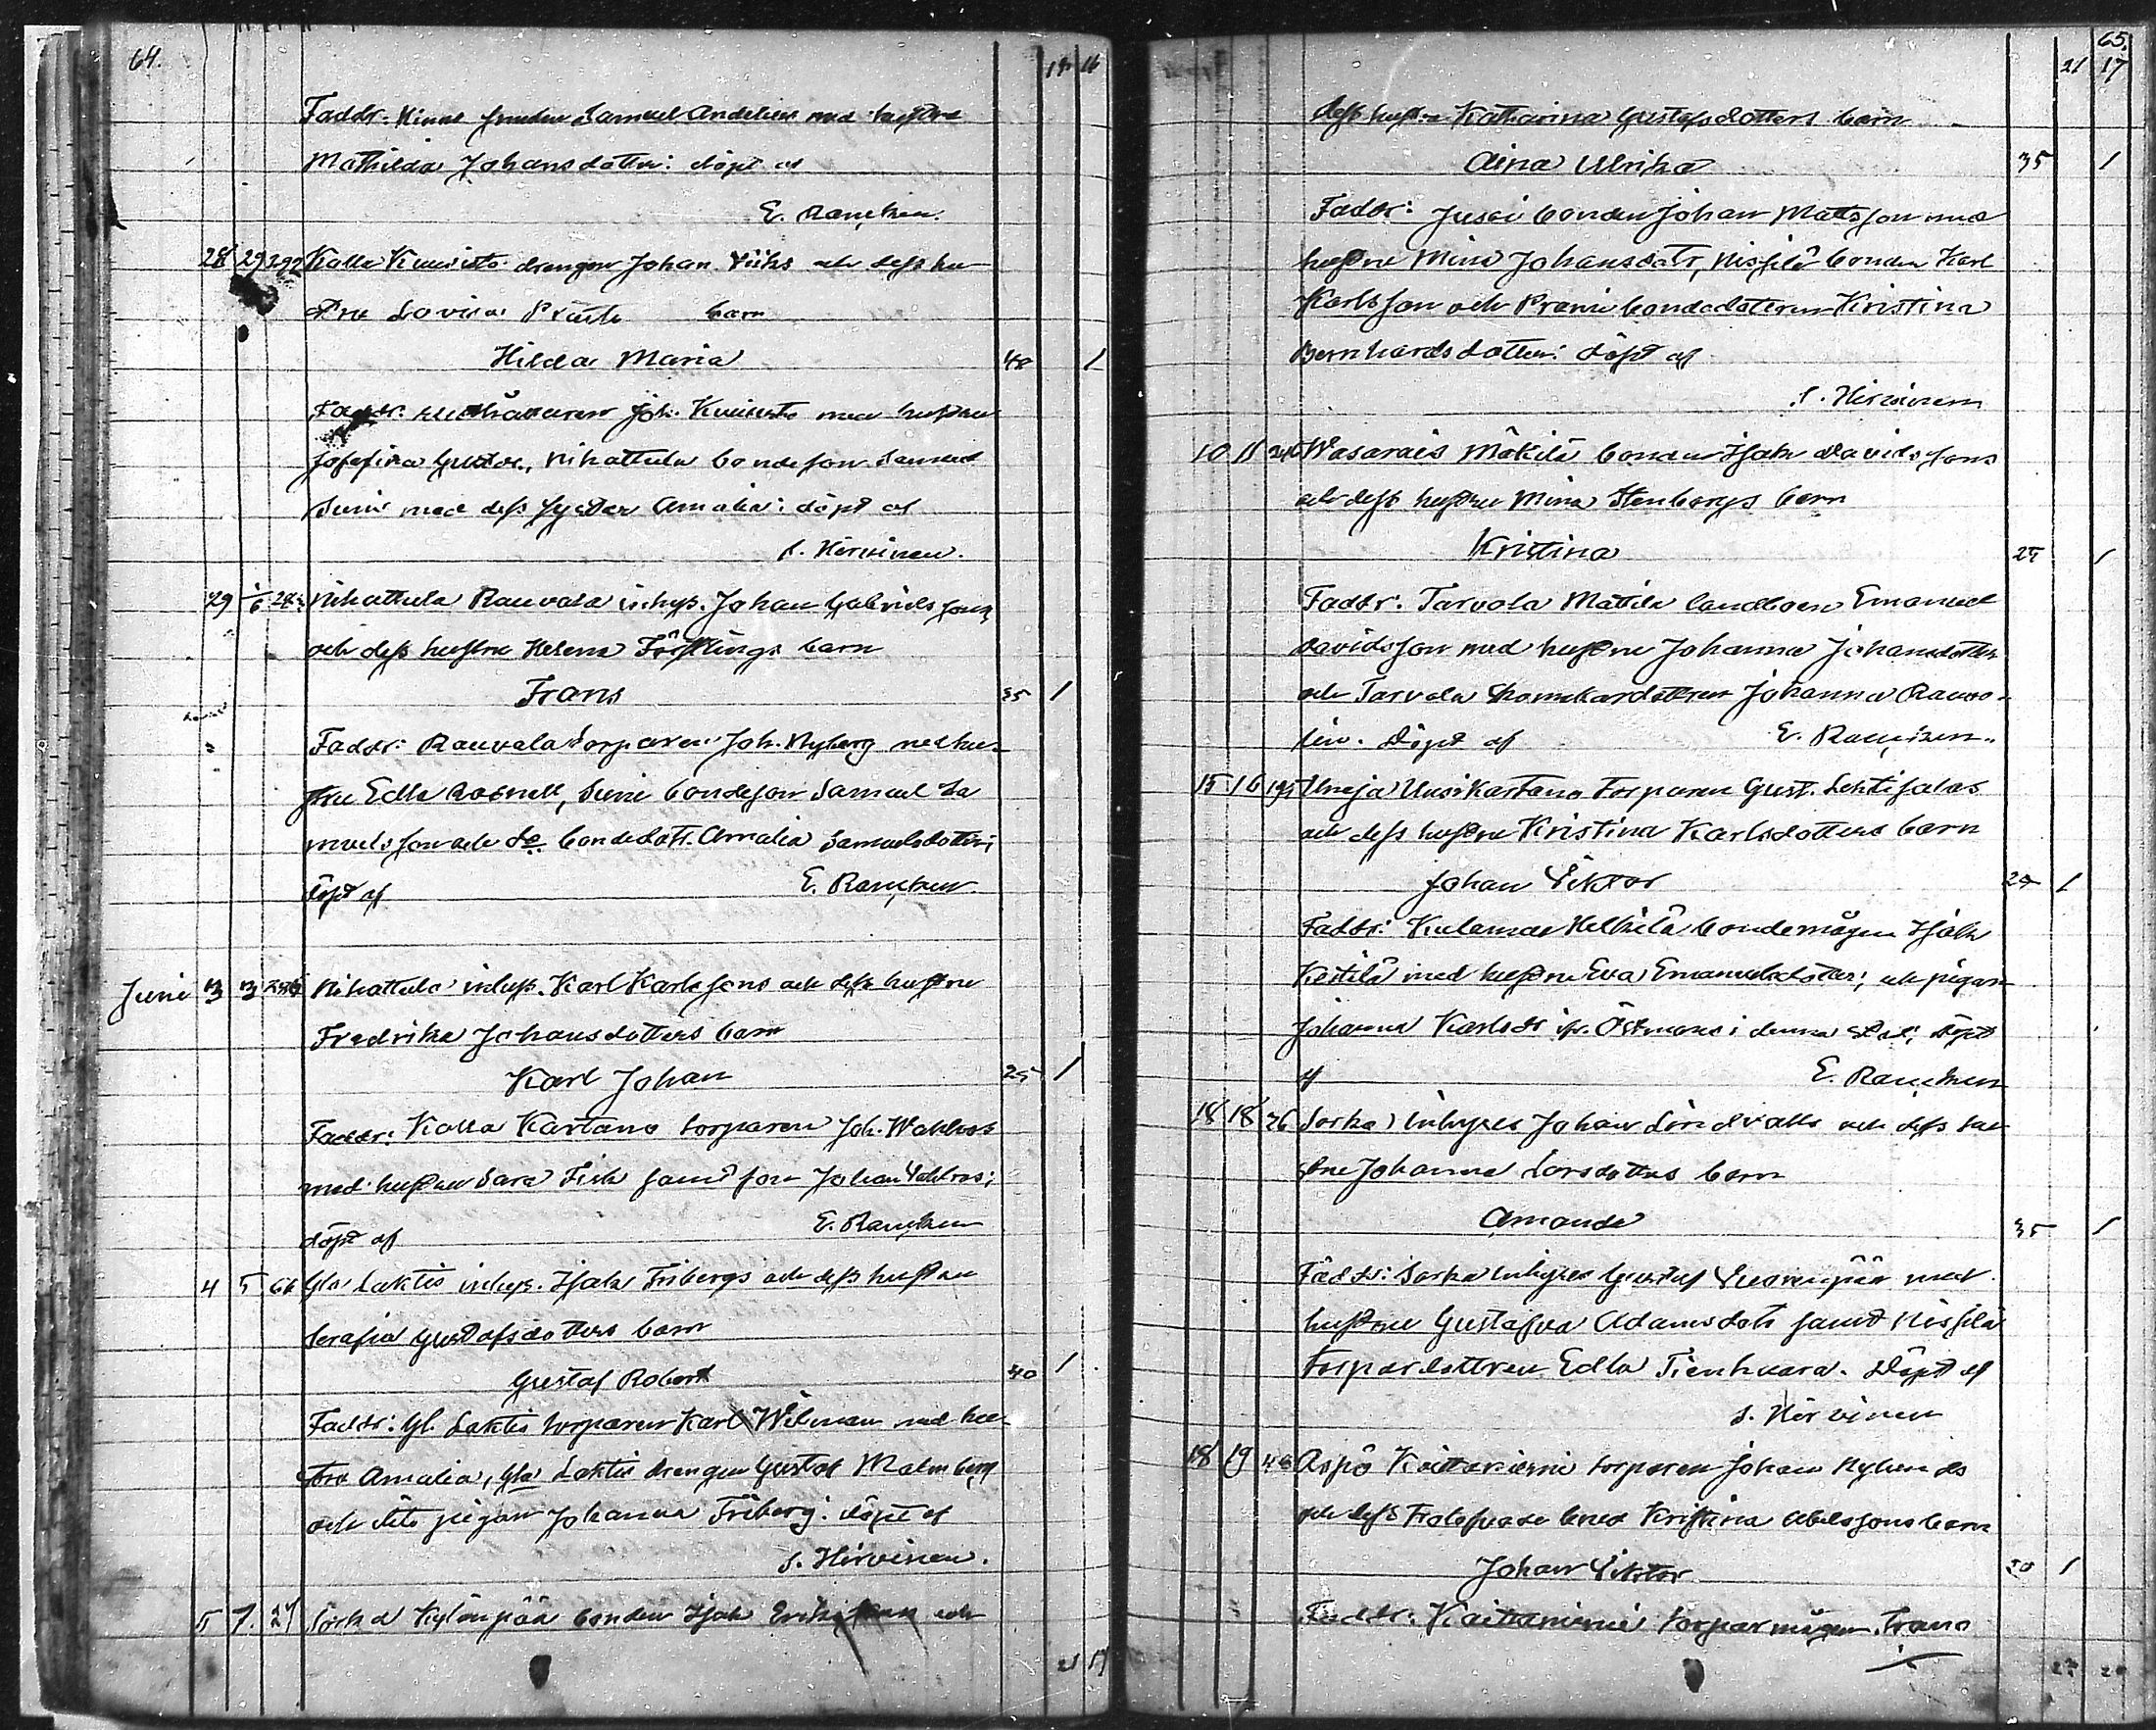 64.
19 16
Faddr: Samuel Andelin med hustru
Mathilda Johansdotter: döpt af
E. Rancken.
28 29 292 Kalla Kuusisto drängen Johan Viiks och dess hu
stru Lovisa barn
Hilda Maria 48 1
Faddr: Joh. Kuusisto med hustru
Josefina Gustdr., Nihattula bondeson Samuel
Suni med dess syster Amalia: döpt af
S. Hirvinen.
29 1/6 Nihattula Rauvala inhys. Johan Gabrielssons
och dess hustru Helena Förstlings barn
Frans 35 1
Faddr: Rauvala torparen Joh. Nyberg med hu-
stru Edla Rosnell, Suni bondeson Samuel Sa
muelsson och do bondedotr. Amalia Samuelsdotter;
döpt af E. Rancken
Juni 3 3 Nihattula inhys. Karl Karlssons och dess hustru
Fredrika Johansdotters barn
Karl Johan 25 1
Faddr: Kalla Kartano torparen Joh. Wahlroos
med hustru Sara Fisk samt son Johan Vahlroos;
döpt af E. Rancken
4 5 66 Gla Laktis inhys. Isak Fribergs och dess hustru
Serafia Gustafsdotters barn
Gustaf Robert 40 1
Faddr: Gl. Laktis torparen Karl Wilman med hu-
stru Amalia, Gla Laktis drängen Gustaf Malmberg
och dito pigan Johanna Friberg: döpt af
S. Hirvinen.
5 7. 27 Sorka Kylänpää bonden Isak Eriksson och
21 17
65.
21 17
dess hustru Katharina Gustafsdotters barn
Aina Ulrika 35 1
Faddr: Jussi bonden Johan Mattsson med
hustru Mina Johansdotr, Nissilä bonden Karl
Karlsson och Prami bondedottren Kristina
Bernhardsdotter: döpt af
S. Hirvinen
10 11 Wasarais Mäkilä bonden Isak Davidssons
och dess hustru Mina Stenbergs barn
Kristina 27 1
Faddr: Tarvola Mattila landboen Emanuel
Davidsson med hustru Johanna Johansdotter
och Tarvola Johanna Rauvo-
lin. Döpt af E. Rancken.
15 16 195 Uneja Uusikartano torparen Gust. Lehtisalos
och dess hustru Kristina Karlsdotters barn
Johan Viktor 1
Faddr: Kulamaa Heikkilä bondemågen Isak
Kestilä med hustru Eva Emanuelsdotter; och pigan
Johanna Karlsdr fr. Östmans i denna stad; döpt
af E. Rancken
18 18 26 Sorka inhyses Johan Lindvalls och dess hu
stru Johanna Larsdotters barn
Amanda 35 1
Faddr: Sorka inhyses Gustaf Suorenpää med
hustru Gustafva Adamsdotr samt Nissilä
torpardottren Edla Tienhaara. Döpt af
S. Hirvinen
18 19 46 Aspö Kaittaniemi torparen Johan Nylunds
och dess Trolofvade Kristina Abelssons barn
Johan Viktor 20 1
Faddr: Kaittaniemi torparmågen Frans